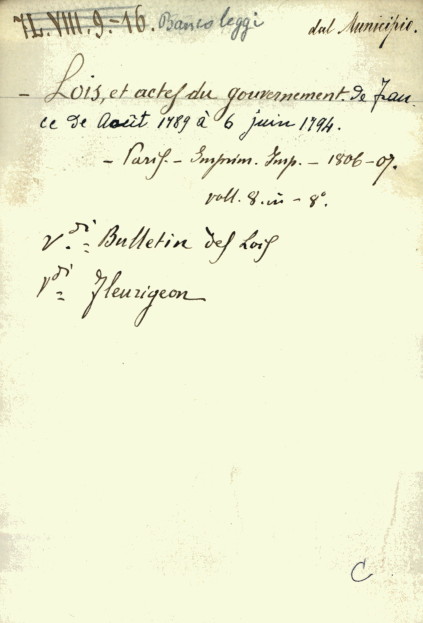 L.VIII.9.-16. Banco leggi dal Municipio.
- Lois, et actes du gouvernement de Fran-
ce de Août 1789 à 6 juin 1794.
- Paris. - Imprim. Imp. - 1806-07.
voll. 8. in - 8°.
V.di = Bulletin des Lois
V.di = Fleurigeon
C